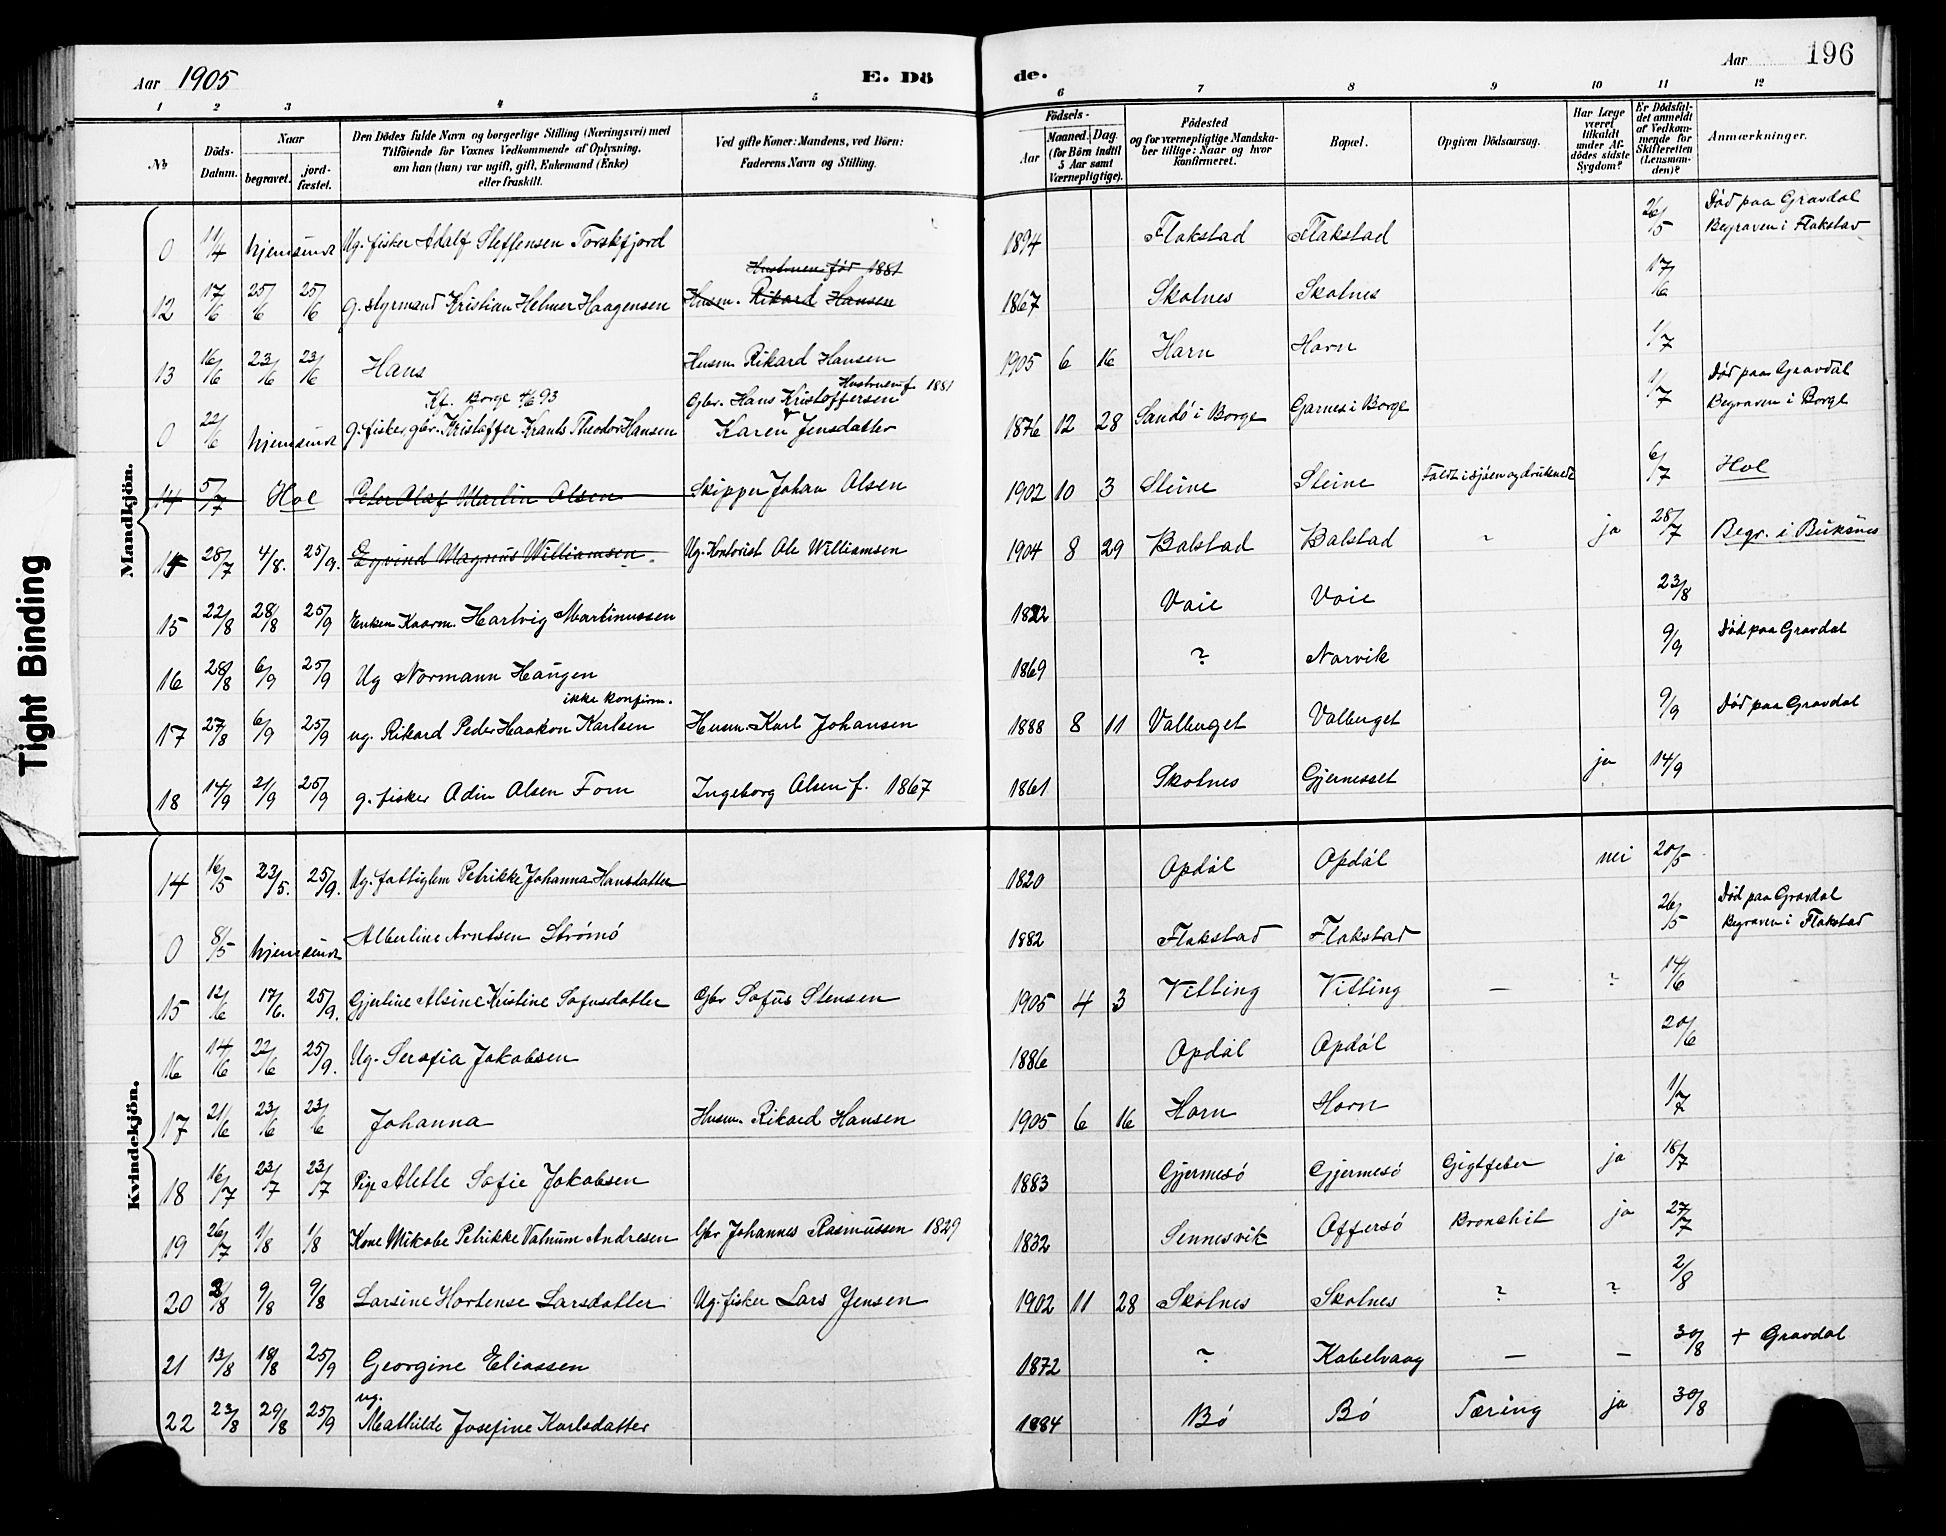 Tight Binding
Aar 1905 E. Dö de. Aar 196
1 2 3 4 5 6 7 8 9 10 11 12
№
Döds-Datum.
Naar
begravet.
jord-fæstet.
Den Dödes fulde Navn og borgerlige Stilling (Næringsvei) med Tilföiende for Voxnes Vedkommende af Oplysning. om han (hun) var ugift, gift, Enkemand (Enke) eller fraskilt.
Ved gifte Koner: Mandens, ved Börn: Faderens Navn og Stilling.
Födsels-
Aar
Maaned. Dag. (for Börn indtil 5 Aar samt Værnepligtige).
Födested og for værnepligtige Mandskaber tillige: Naar og hvor konfirmeret.
Bopæl.
Opgiven Dödsaarsag.
Har Læge været tilkaldt under Afdödes sidste Sygdom?
Er Dödsfaldet anmeldt af Vedkommende for Skifteretten (Lensmanden)?
Anmærkninger.
Mandkjön.
0 11/4 hjemsendt Ug. fisker Adolf Steffensen Torskfjord 1894 Flakstad Flakstad 26/5 Död paa Gravdal Begraven i Flakstad
Hustruen föd 1881
12 17/6 25/6 25/6 g. styrmand Kristian Helmer Haagensen Husm. Rikard Hansen 1867 Skolnes Skolnes 17/6
13 16/6 23/6 23/6 Hans Husm. Rikard Hansen 1905 6 16 Horn Horn 1/7
Kf. Borge 4/6 93 Gbr. Hans Kristoffersen Hustruen f. 1881
0 22/6 hjemsendt g. fisker, gbr. Kristoffer Krants Theodor Hansen Karen Jensdatter 1876 12 28 Sandö i Borge Garnes i Borge 1/7 Död paa Gravdal Begraven i Borge
14 5/7 Hol Peter Olaf Martin Olsen Skipper Johan Olsen 1902 10 3 Steine Steine Faldt i sjöen og druknede 6/7 Hol
14 28/7 4/8. 25/9. Eyvind Magnus Williamsen Ug. Kontorist Ole Williamsen 1904 8 29 Balstad Balstad - ja 28/7 Begr. i Buksnes
15 22/8 28/8 25/9 Enkem Kaarm. Hartvig Martinussen 1822 Voie Voie 23/8
16 28/8 6/9 25/9 Ug Normann Haugen 1869 ? Narvik 9/9 Död paa Gravdal
ikke konfirm.
17 27/8 6/9 25/9 ug. Rikard Peder Haakon Karlsen Husm. Karl Johansen 1888 8 11 Valberget Valberget 9/9 Död paa Gravdal
18 14/9 21/9 25/9 g. fisker Odin Olsen Fom Ingeborg Olsen f. 1867 1861 Skolnes Gjernesset ja 14/9
Kvindekjön.
14 16/5 23/5. 25/9. Ug. fattiglem Petrikke Johanna Hansdatter 1820 Opdöl Opdöl nei 20/5
0 8/5 hjemsendt Albertine Arntsen Strömö 1882 Flakstad Flakstad 26/5 Död paa Gravdal Begraven i Flakstad
15 12/6 17/6. 25/9. Gjertine Alsine Kristine Sofusdatter Gbr Sofus Stensen 1905 4 3 Vitting Vitting — ? 14/6
16 14/6 22/6 25/9. Ug. Serafia Jakobsen 1886 Opdöl Opdöl 20/6
17 21/6 23/6 23/6 Johanna Husm. Rikard Hansen 1905 6 16 Horn Horn 1/7
18 16/7 23/7 23/7 Pige Alette Sofie Jakobsen 1883 Gjermesö Gjermesö Gigtfeber ja 18/7
19 26/7 1/8 1/8 Kone Mikobe Petrikke Valnum Andresen Gbr Johannes Rasmussen 1829 1832 Sennesvik Offersö Bronchit ja 27/7
20 2/8 9/8 9/8 Larsine Hortense Larsdatter Ug. fisker Lars Jensen 1902 11 28 Skolnes Skolnes ? ? 2/8
21 13/8 18/8 25/9 Georgine Eliassen 1872 ? Kabelvaag — — 30/8 + Gravdal
ug.
22 23/8 29/8 25/9 Mathilde Josefine Karlsdatter 1884 Bö Bö Tæring ja 30/8